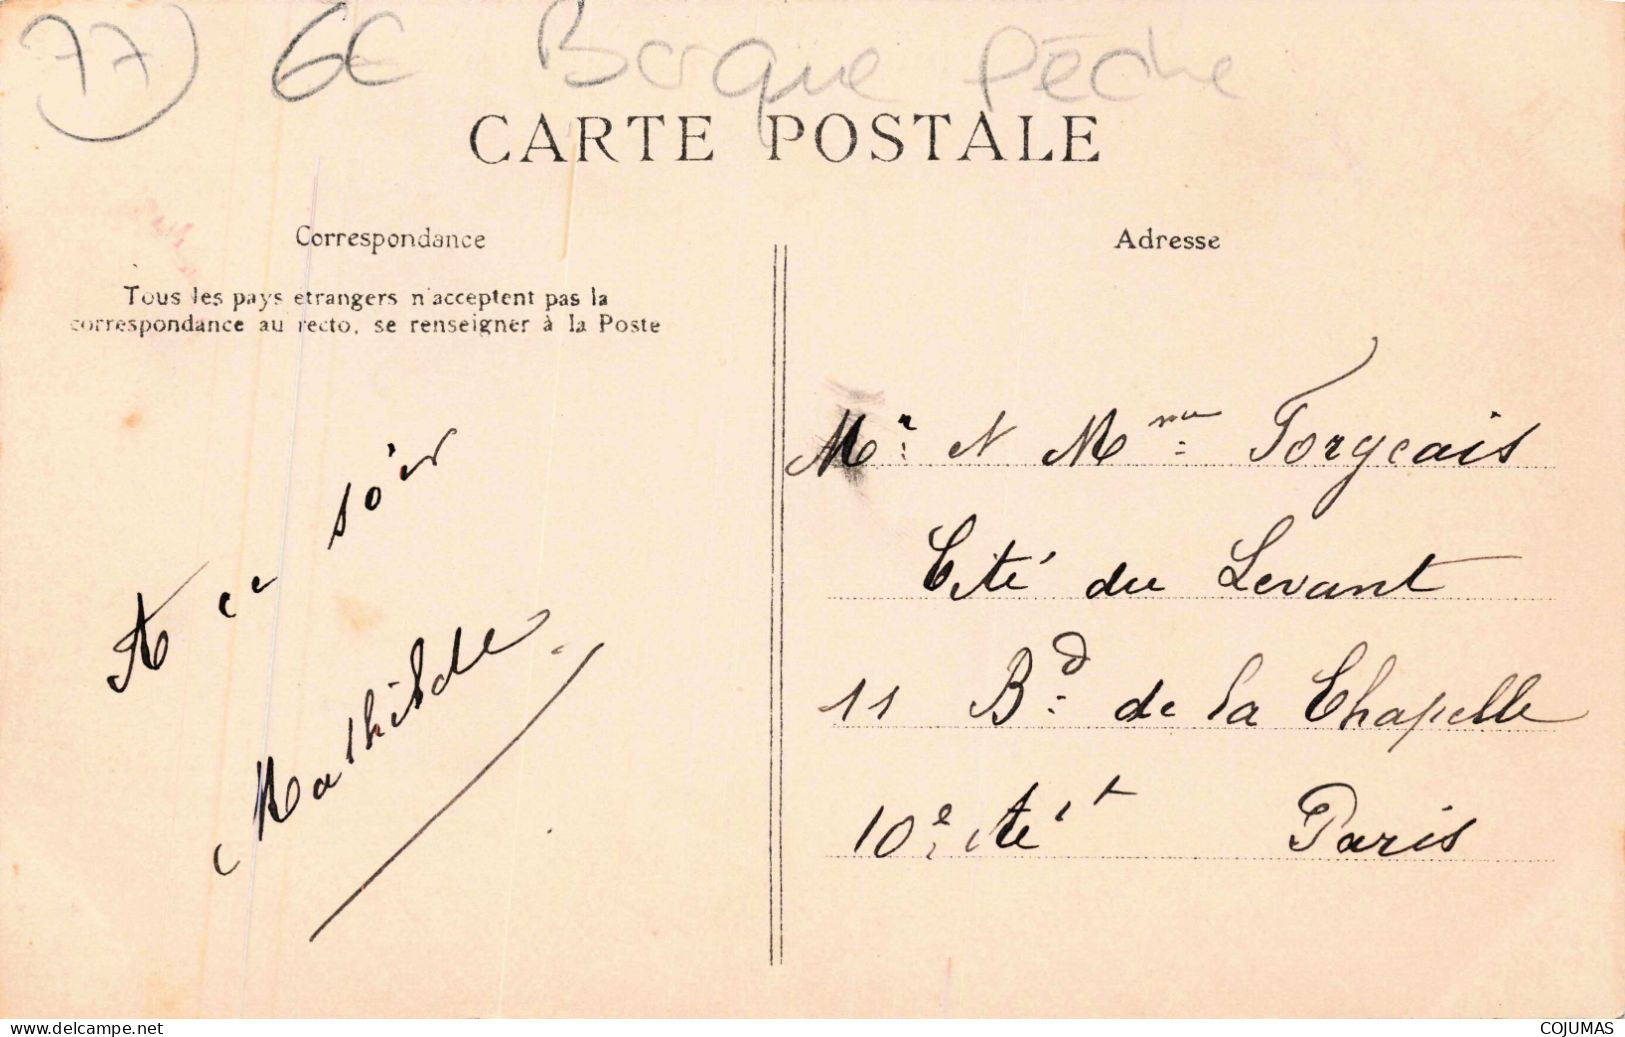 77) 6€ Barque pêche
CARTE POSTALE
Correspondance
Tous les pays etrangers n'acceptent pas la
correspondance au recto, se renseigner à la Poste
A ce soir
Mathilde
Adresse
Mr et Mme Forgeais
Cité du Levant
11 Bd de la Chapelle
10e Art Paris
www.delcampe.net
COJUMAS